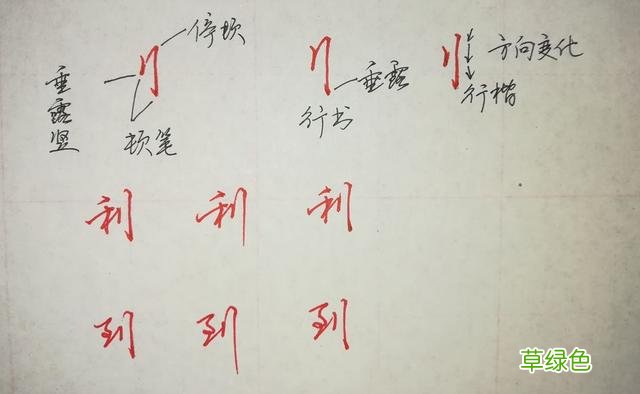 刂
垂露竖
顿笔
刂
垂露
行书
刂
方向变化
行楷
利 利 利
到 到 到
草绿色